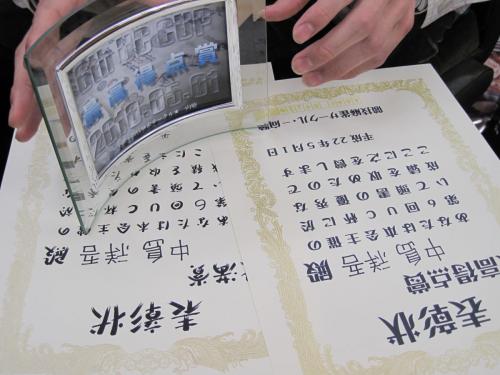 6th UC CUP
最高得点賞
2010.05.01
表彰状
高得点賞
中島祥吾 殿
あなたは本会主催の
第6回UC杯に於
いて頭書の優秀な
成績を収めたので
ここに之を賞します
平成22年5月1日
表彰状
満賞
中島祥吾 殿
あなたは本会主催の
第6回UC杯に於
いて頭書の